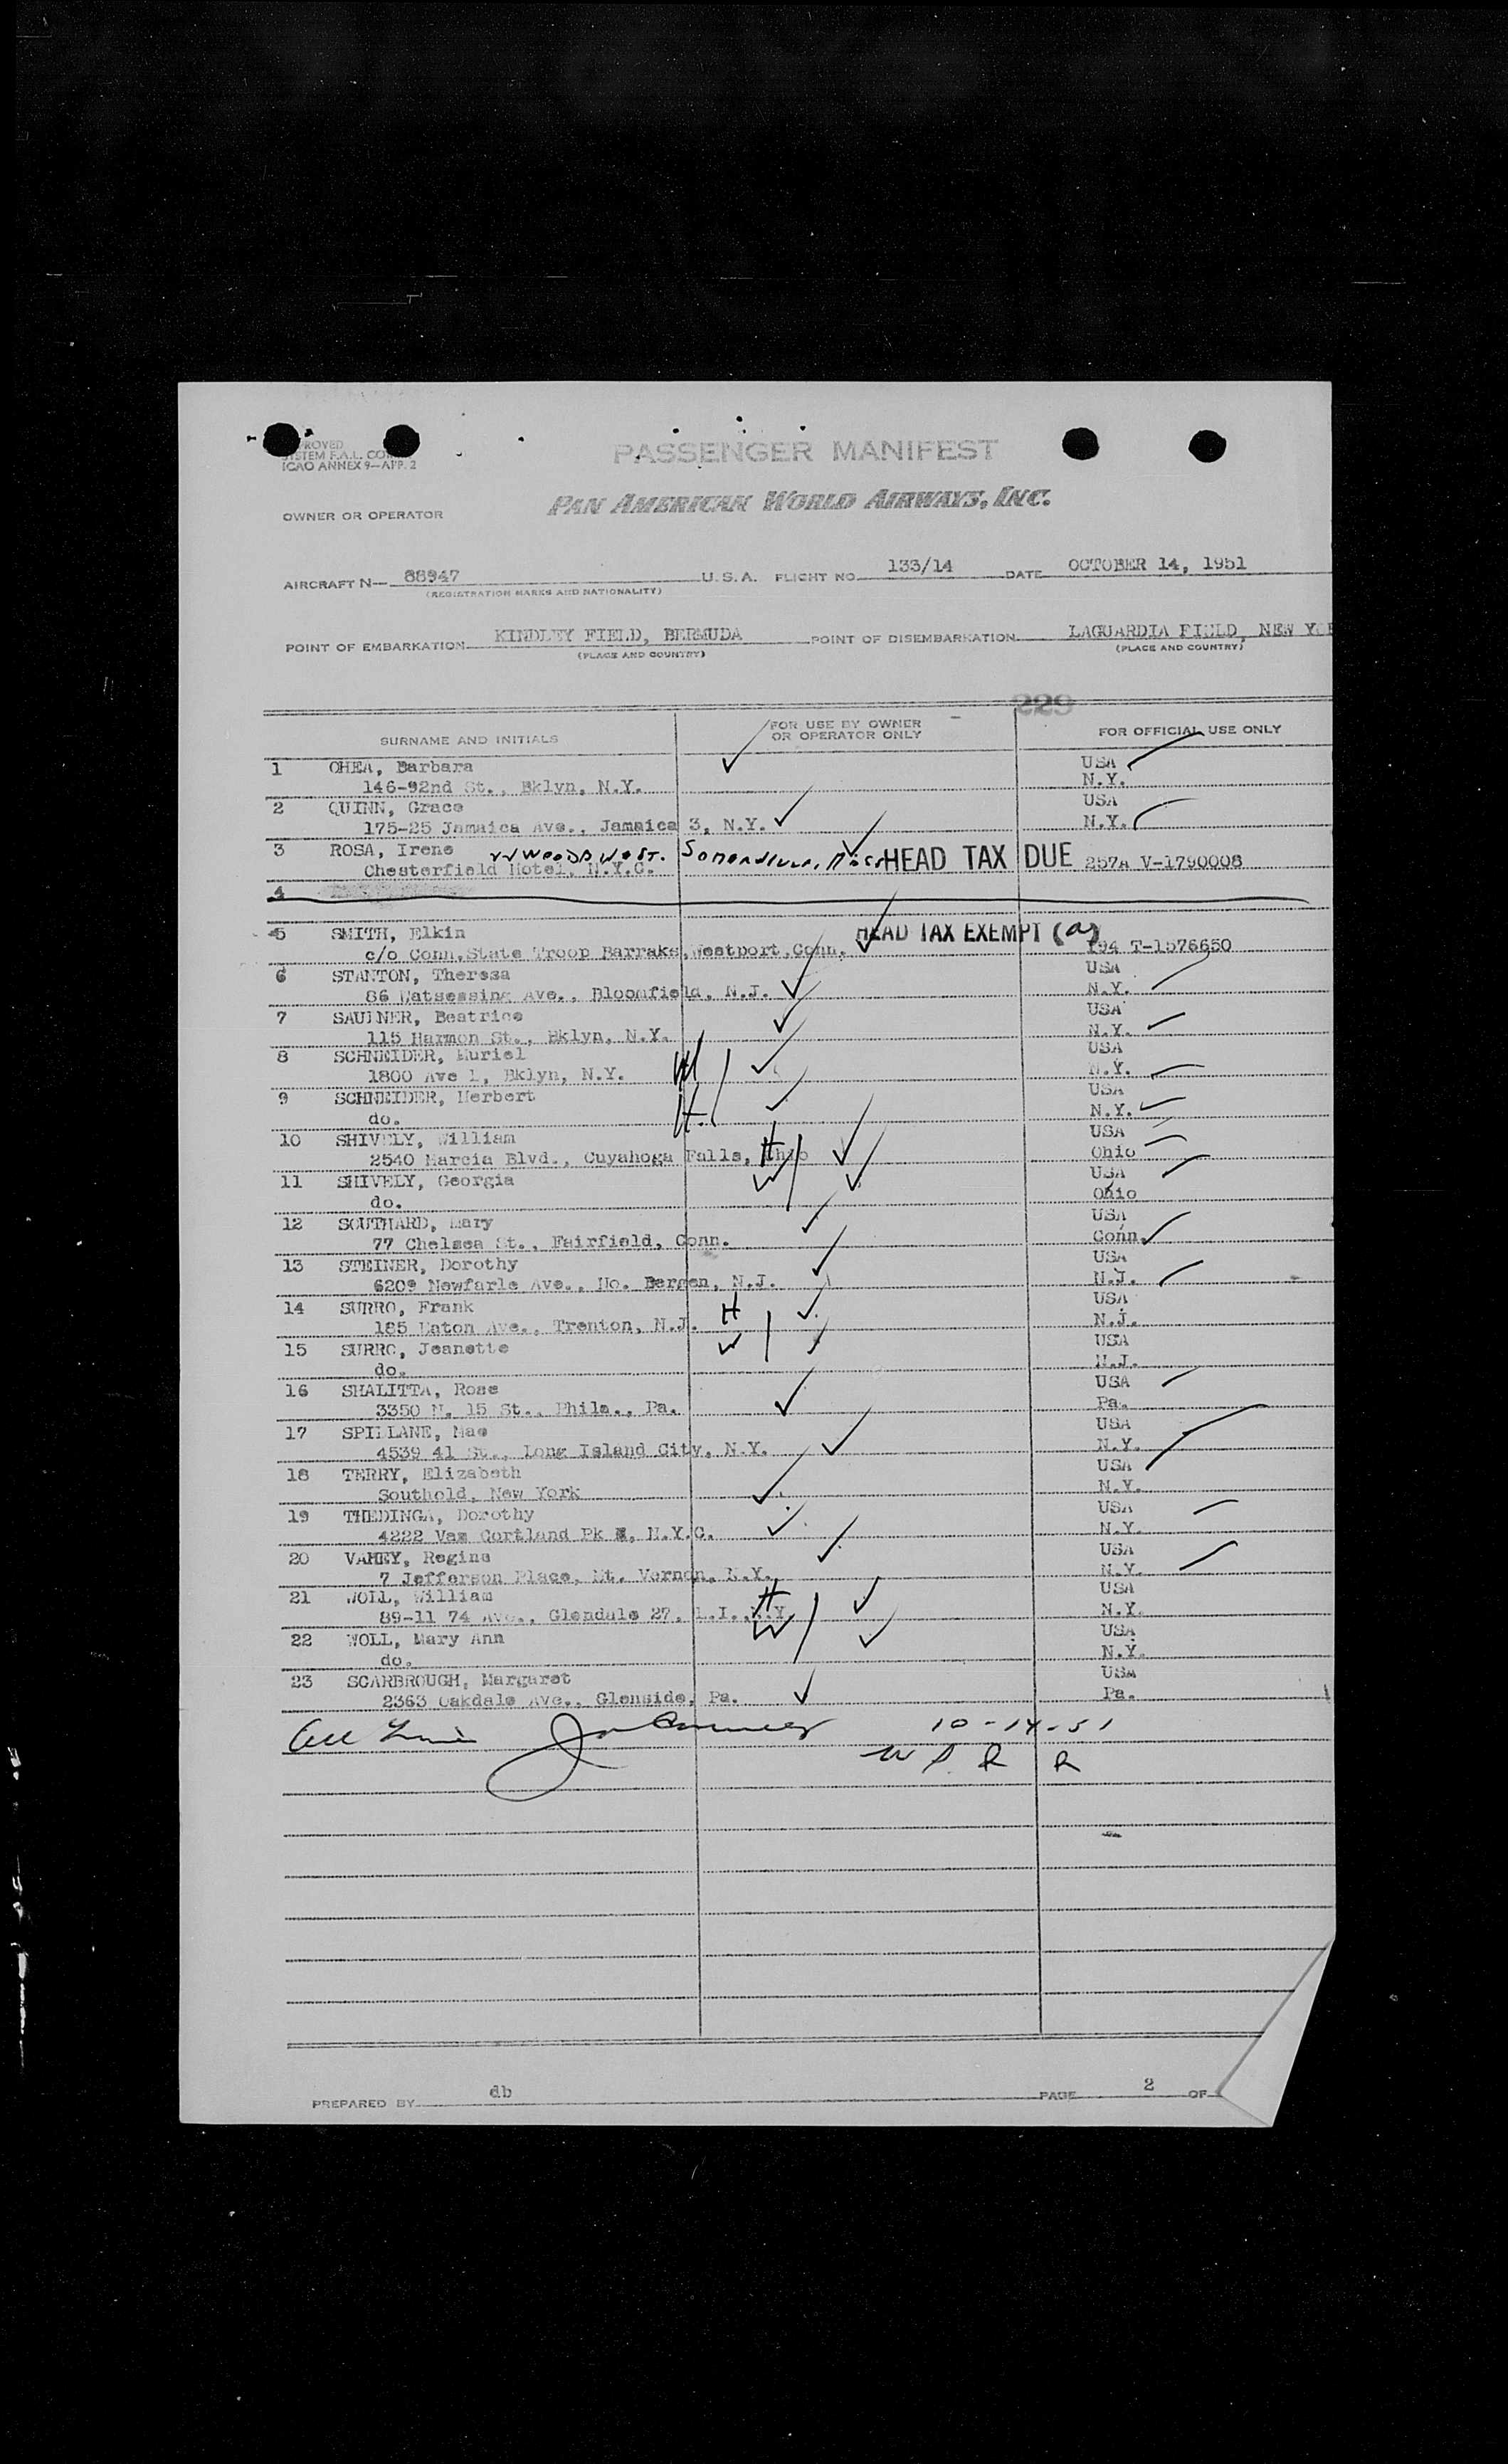 PROVED
STEM F.A.L. CO
ICAO ANNEX 9—APP. 2
PASSENGER MANIFEST
PAN AMERICAN WORLD AIRWAYS, INC.
OWNER OR OPERATOR
AIRCRAFT N— 88947 U.S.A. FLIGHT NO. 133/14 DATE OCTOBER 14, 1951
(REGISTRATION MARKS AND NATIONALITY)
POINT OF EMBARKATION KINDLEY FIELD, BERMUDA POINT OF DISEMBARKATION LAGUARDIA FIELD, NEW Y
(PLACE AND COUNTRY) (PLACE AND COUNTRY)
229
SURNAME AND INITIALS FOR USE BY OWNER OR OPERATOR ONLY FOR OFFICIAL USE ONLY
1 OHEA, Barbara USA
146-92nd St., Bklyn, N.Y. N.Y.
2 QUINN, Grace USA
175-25 Jamaica Ave., Jamaica 3, N.Y. N.Y.
3 ROSA, Irene HEAD TAX DUE 257A V-1790008
Chesterfield Hotel, N.Y.C.
4
5 SMITH, Elkin HEAD TAX EXEMPT (a)
c/o Conn,State Troop Barraks,Westport,Conn. 194 T-1576650
6 STANTON, Theresa USA
86 Watsessing Ave., Bloomfield, N.J. N.Y.
7 SAULNER, Beatrice USA
115 Harmon St., Bklyn, N.Y. N.Y.
8 SCHNEIDER, Muriel W USA
1800 Ave L, Bklyn, N.Y. N.Y.
9 SCHNEIDER, Herbert H USA
do. N.Y.
10 SHIVELY, William H USA
2540 Marcia Blvd., Cuyahoga Falls, Ohio Ohio
11 SHIVELY, Georgia W USA
do. Ohio
12 SOUTHARD, Mary USA
77 Chelsea St., Fairfield, Conn. Conn.
13 STEINER, Dorothy USA
6209 Newfarle Ave., No. Bergen, N.J. N.J.
14 SURRO, Frank H USA
185 Eaton Ave., Trenton, N.J. N.J.
15 SURRO, Jeanette W USA
do. N.J.
16 SHALITTA, Rose USA
3350 N. 15 St., Phila., Pa. Pa.
17 SPILLANE, Mae USA
4539 41 St., Long Island City, N.Y. N.Y.
18 TERRY, Elizabeth USA
Southold, New York N.Y.
19 THEDINGA, Dorothy USA
4222 Van Cortland Pk E, N.Y.C. N.Y.
20 VAHEY, Regina USA
7 Jefferson Place, Mt. Vernon, N.Y. N.Y.
21 WOLL, William H USA
89-11 74 Ave., Glendale 27, L.I.,N.Y. N.Y.
22 WOLL, Mary Ann W USA
do. N.Y.
23 SCARBROUGH, Margaret USA
2363 Oakdale Ave., Glenside, Pa. Pa.
10-14-51
PREPARED BY db PAGE 2 OF